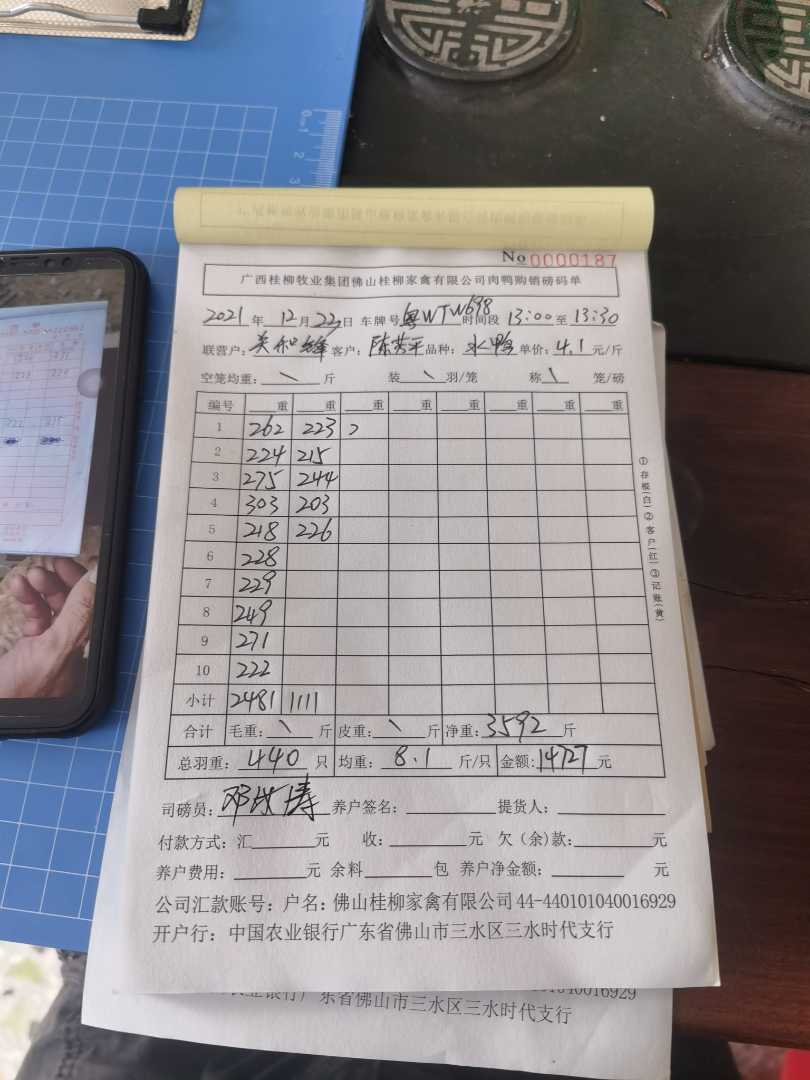 No 0000187
广西桂柳牧业集团佛山桂柳家禽有限公司肉鸭购销磅码单
2021年 12月 22日 车牌号 粤WTW698 时间段 13:00 至 13:30
联营户: 和 客户: 陈 平 品种: 水鸭 单价: 4.1 元/斤
空笼均重: \ 斤 装 \ 羽/笼 称 \ 笼/磅
编号 重 重 重 重 重 重 重 重
1 262 223 2
2 224 215
3 275 244
4 303 203
5 218 226
6 228
7 229
8 249
9 271
10 222
小计 2481 1111
合计 毛重: \ 斤 皮重: \ 斤 净重: 3592 斤
总羽重: 440 只 均重: 8.1 斤/只 金额: 14727 元
司磅员: 邓 涛 养户签名: 提货人:
付款方式: 汇 元 收: 元 欠(余)款: 元
养户费用: 元 余料 包 养户净金额: 元
公司汇款账号: 户名: 佛山桂柳家禽有限公司 44-440101040016929
开户行: 中国农业银行广东省佛山市三水区三水时代支行
①存根(白)②客户(红)③记账(黄)
农业银行广东省佛山市三水区三水时代支行